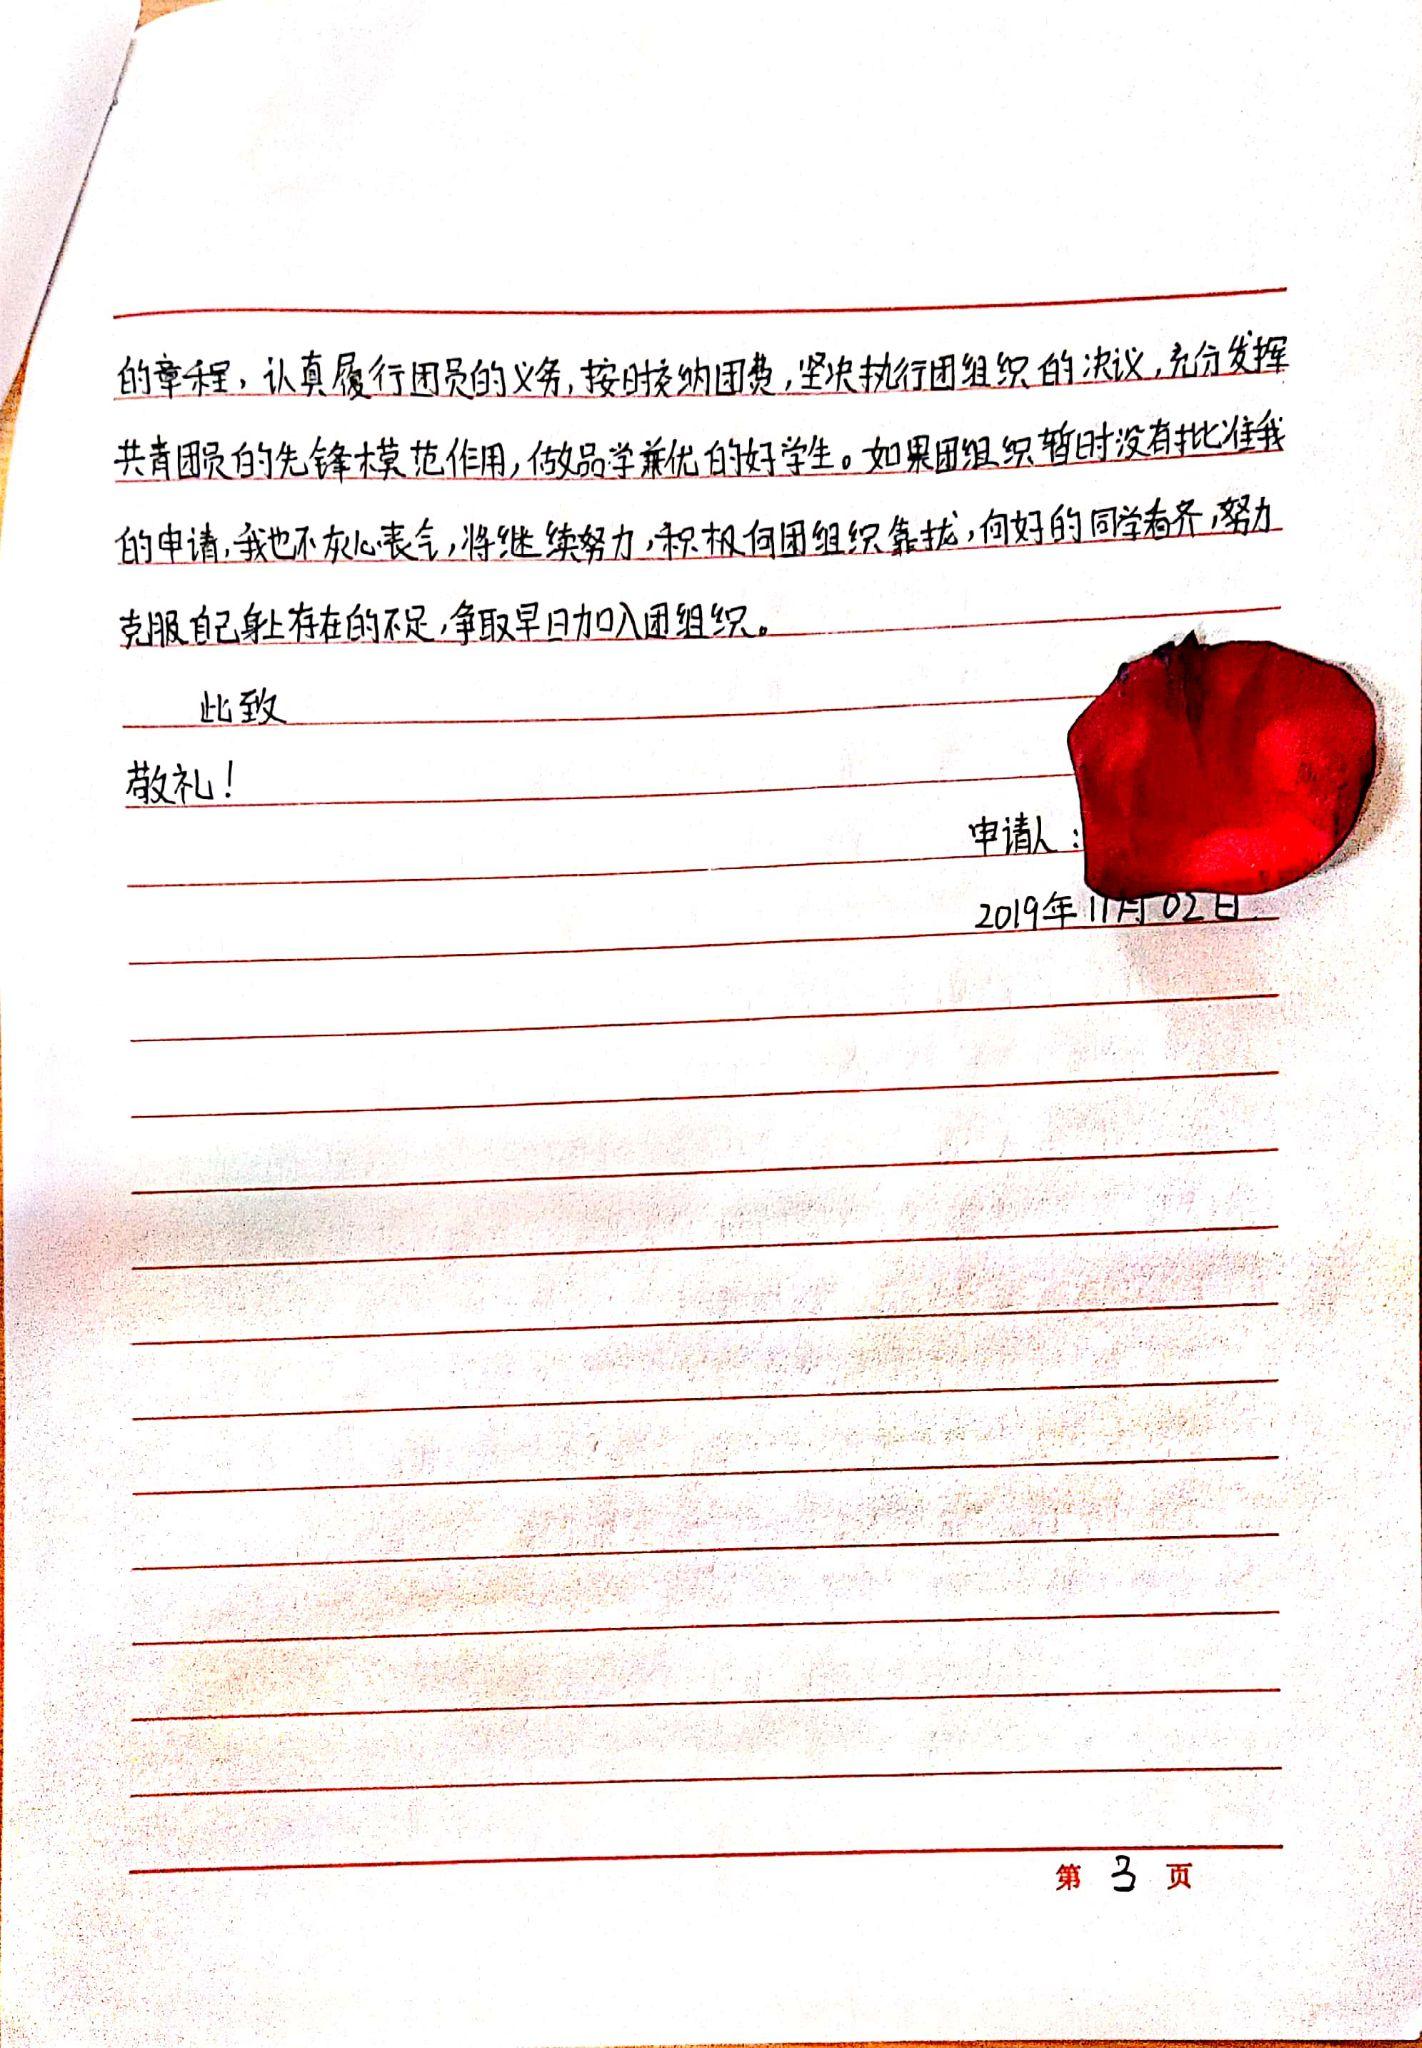 的章程，认真履行团员的义务，按时交纳团费，坚决执行团组织的决议，充分发挥
共青团员的先锋模范作用，做品学兼优的好学生。如果团组织暂时没有批准我
的申请，我也不灰心丧气，将继续努力，积极向团组织靠拢，向好的同学看齐，努力
克服自己身上存在的不足，争取早日加入团组织。
此致
敬礼！
申请人：
2019年11月02日
第 3 页